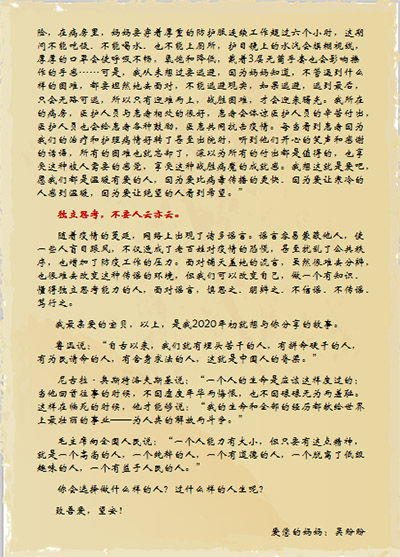 险，在病房里，妈妈要穿着厚重的防护服连续工作超过六个小时，这期
间不能吃饭、不能喝水、也不能上厕所，护目镜上的水汽会模糊视线，
厚厚的口罩会使呼吸不畅，氧饱和降低，戴着3层无菌手套也会影响操
作的手感……可是，我从未想过要逃避，因为妈妈知道，不管遇到什么
样的困难，都要坦然地去面对，不能逃避现实，如果逃避，逃到最后，
只会无路可逃，所以只有迎难而上，战胜困难，才会迎来曙光。我所在
的病房，医护人员与患者相处的很好，患者会体谅医护人员的辛苦付出，
医护人员也会给患者各种鼓励，医患共同抗击疫情。每当看到患者因为
我们的治疗和护理病情好转了甚至出院时，听到他们开心的笑声和感谢
的话语，所有的困难也就忘却了，深以为所有的付出都是值得的，也享
受这种被人需要的感觉，享受这种战胜病魔的成就感。我想这就是爱吧，
愿我们都是温暖有爱的人，因为爱比病毒传播的更快、因为爱让寒冷的
人感到温暖，因为爱让绝望的人看到希望。”
独立思考，不要人云亦云。
随着疫情的蔓延，网络上出现了诸多谣言。谣言容易蒙蔽他人，使
一些人盲目跟风，不仅造成了老百姓对疫情的恐慌，甚至扰乱了公共秩
序，也增加了防疫工作的压力。面对铺天盖地的流言，虽然很难去分辨，
也很难去改变这种传谣的环境，但我们可以改变自己，做一个有知识、
懂得独立思考能力的人，面对谣言，慎思之、明辨之、不信谣、不传谣、
笃行之。
我最亲爱的宝贝，以上，是我2020年初就想与你分享的故事。
鲁迅说：“自古以来，我们就有埋头苦干的人，有拼命硬干的人，
有为民请命的人，有舍身求法的人，这就是中国人的脊梁。”
尼古拉·奥斯特洛夫斯基说：“一个人的生命是应该这样度过的：
当他回首往事的时候，不因虚度年华而悔恨，也不因碌碌无为而羞耻。
这样在临死的时候，他才能够说：“我的生命和全部的经历都献给世界
上最壮丽的事业——为人类的解放而斗争。”
毛主席向全国人民说：“一个人能力有大小，但只要有这点精神，
就是一个高尚的人，一个纯粹的人，一个有道德的人，一个脱离了低级
趣味的人，一个有益于人民的人。”
你会选择做什么样的人？过什么样的人生呢？
致吾爱，望安！
爱您的妈妈：吴纷纷